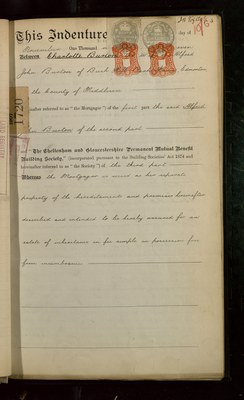 This Indenture
day of
November One Thousand
Between Charlotte Burton
Alfred
John Burton of
the County of Middlesex
(hereinafter referred to as "the Mortgagor") of the first part the said Alfred
John Burton of the second part
and "The Cheltenham and Gloucestershire Permanent Mutual Benefit
Building Society," incorporated pursuant to the Building Societies Act 1874 and
hereinafter referred to as "the Society") of the third part
Whereas the Mortgagor is seized as her separate
property of the hereditaments and premises hereinafter
described and intended to be hereby assured for an
estate of inheritance in fee simple in possession free
from incumbrances
1720